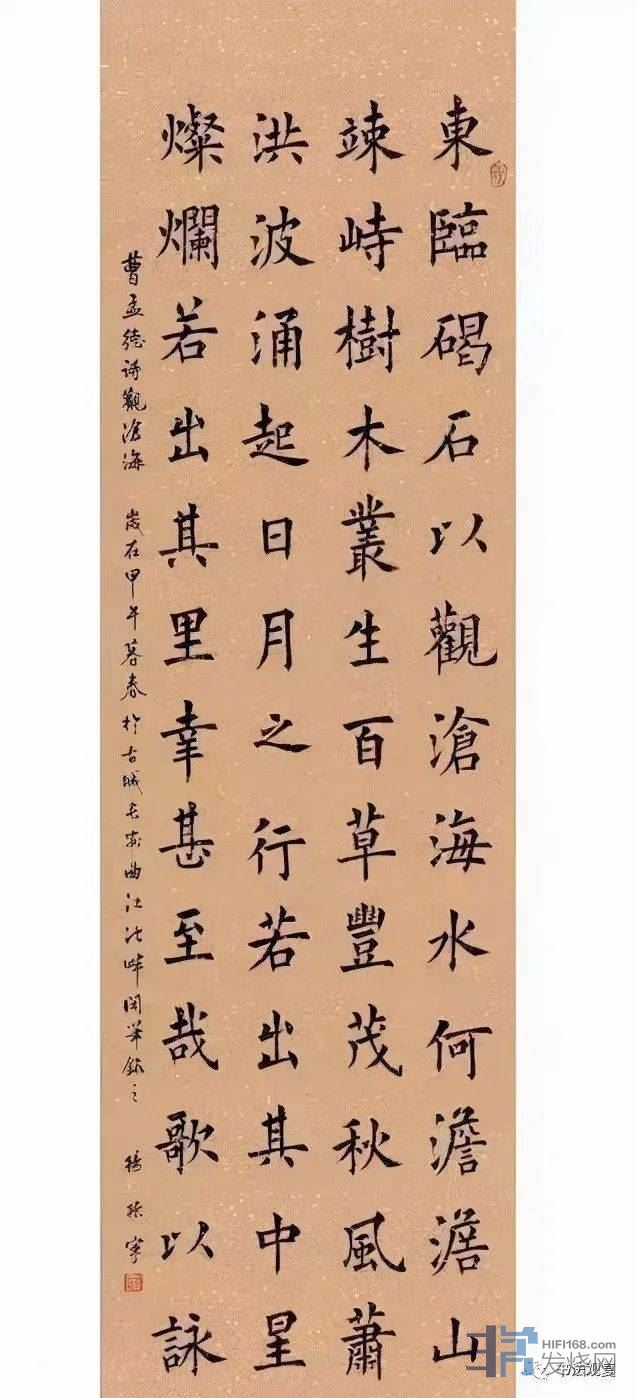 東臨碣石以觀滄海水何澹澹山
竦峙樹木叢生百草豐茂秋風蕭
洪波涌起日月之行若出其中星
燦爛若出其里幸甚至哉歌以詠
曹孟德詩觀滄海 歲在甲午暮春於古城長安曲江池畔閑筆錄之 楊
HIFI168.com
发烧网
书法观夏